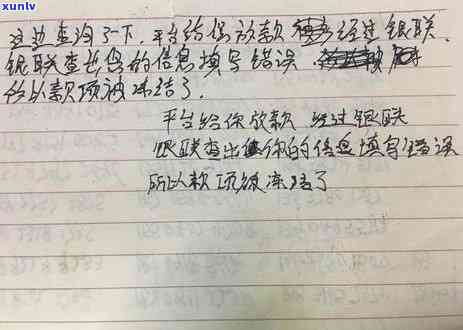 xunlv
这边查询了一下，平台给你放款 经过银联.
银联查出您的信息填写错误
所以款项被冻结了.
平台给你放款 经过银联
银联查出你的信息填写错误
所以款项被冻结了